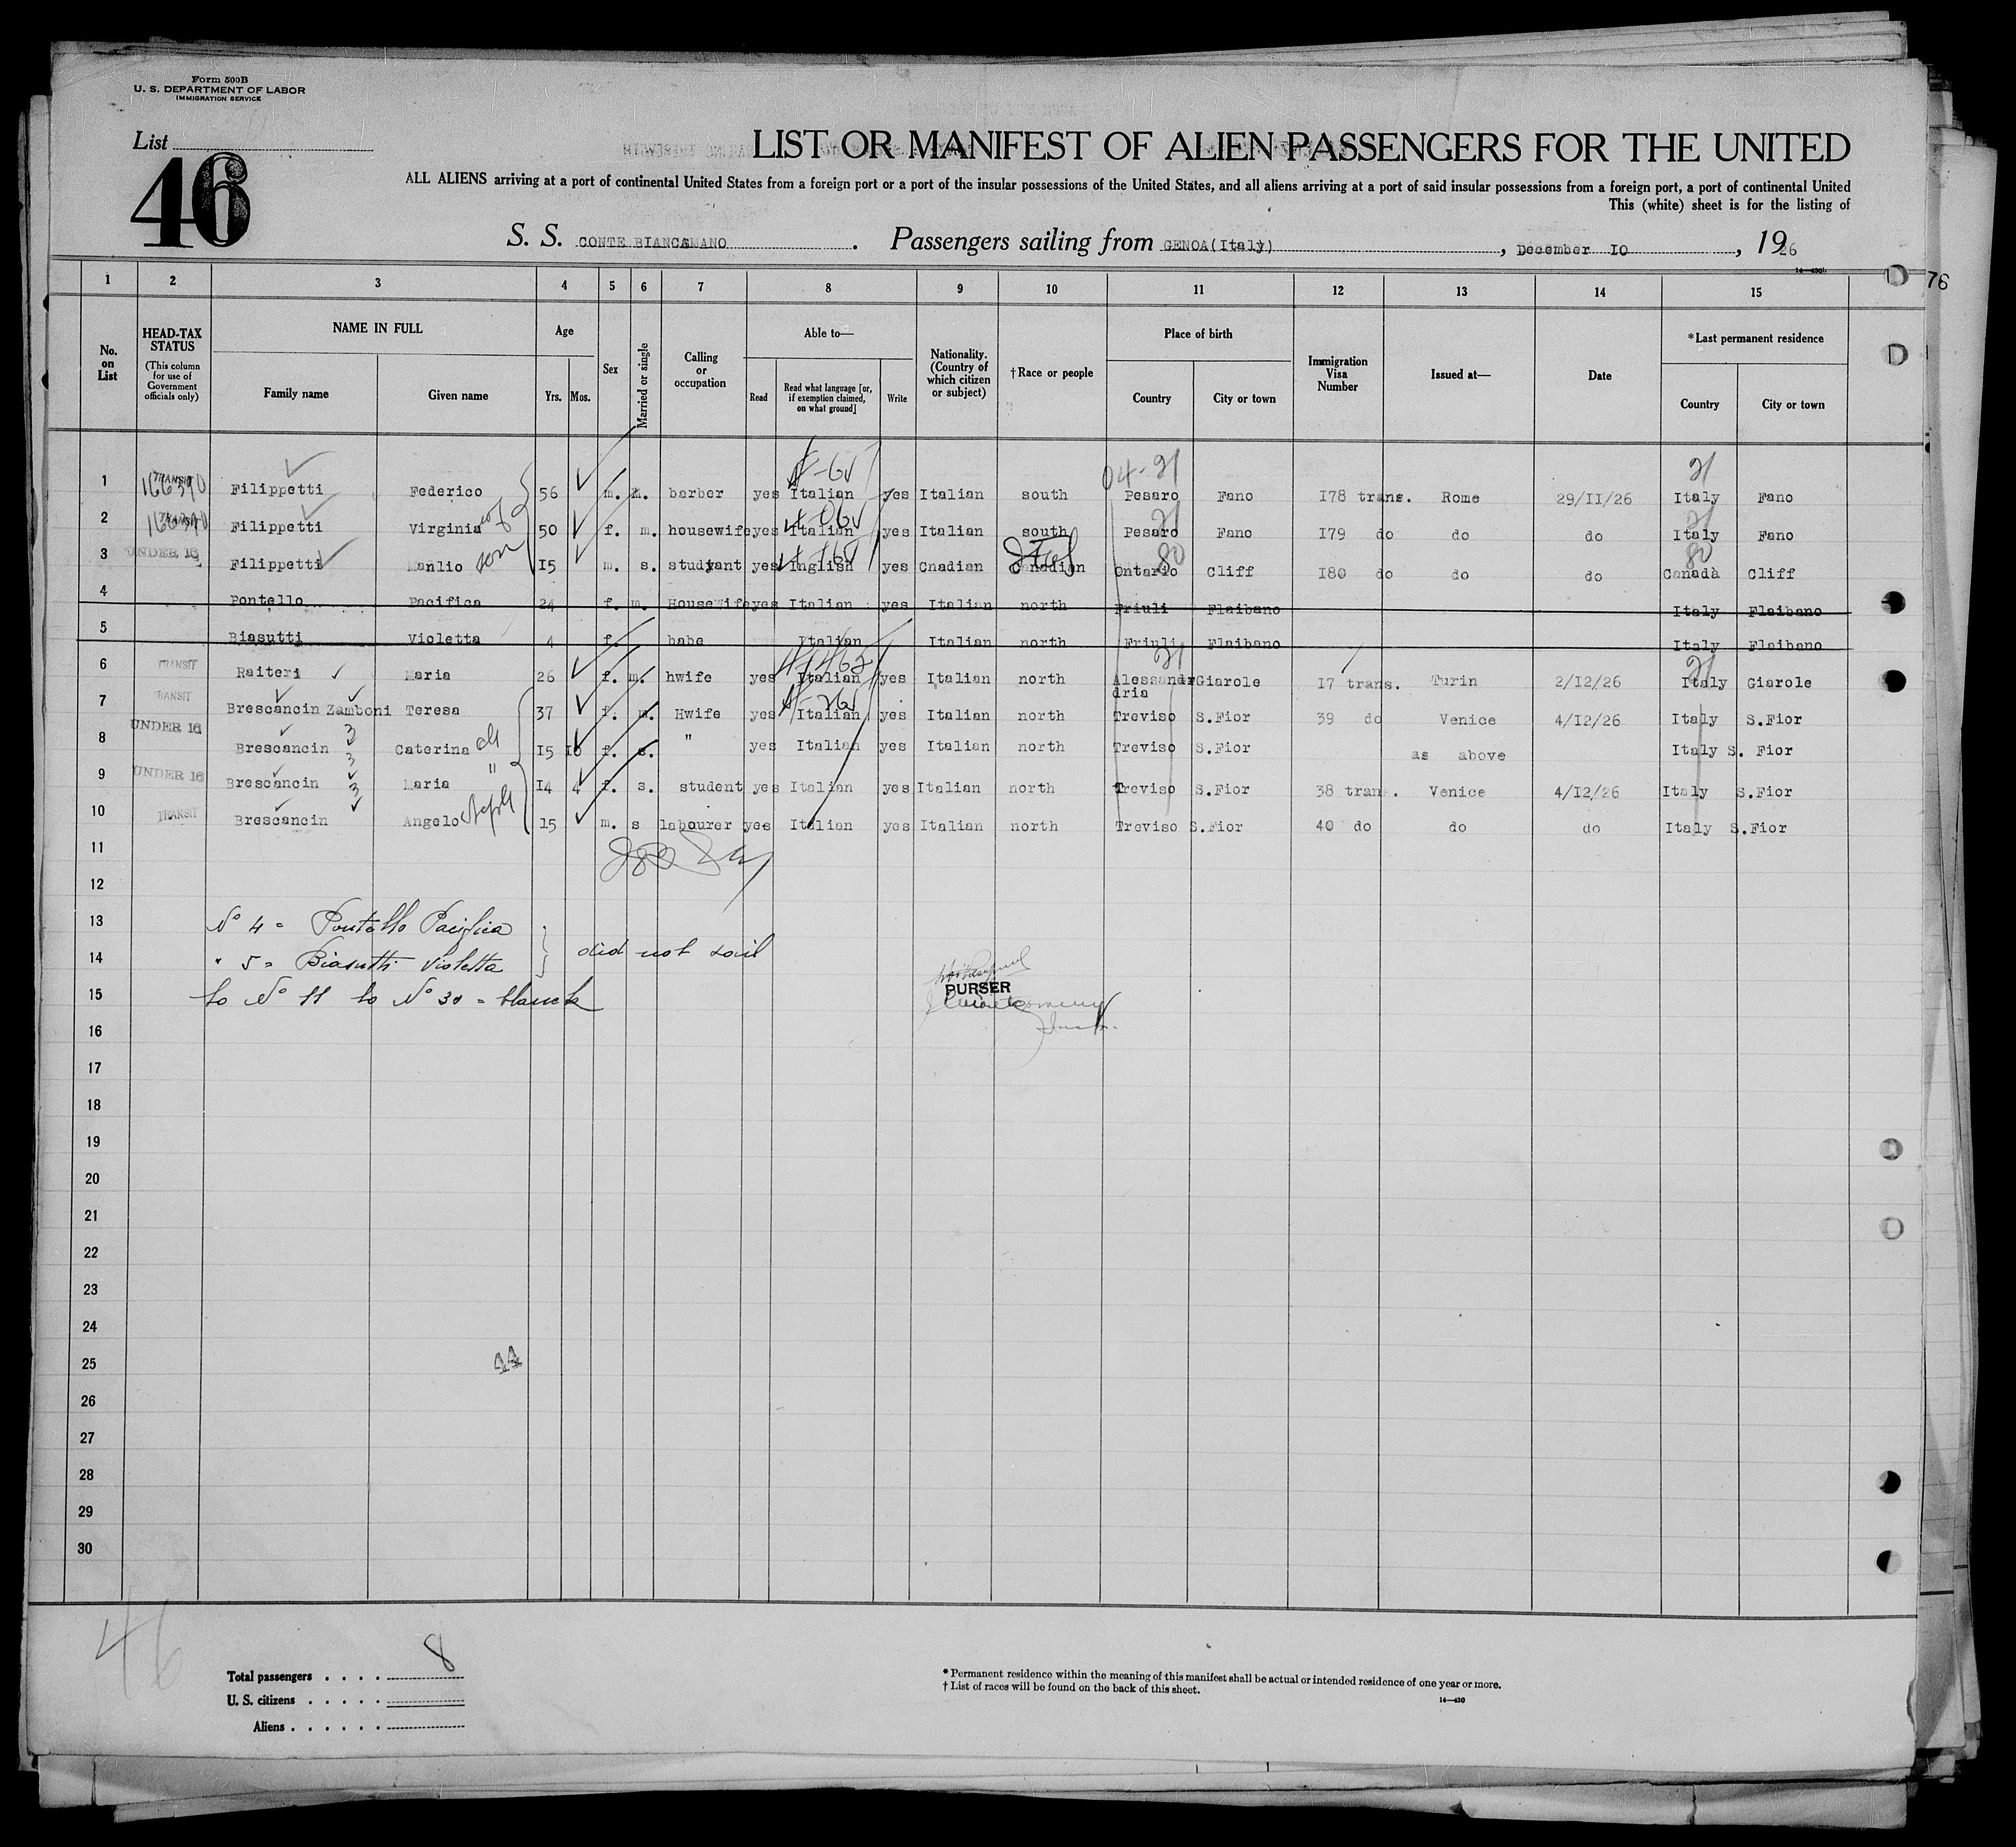 Form 500B
U. S. DEPARTMENT OF LABOR
IMMIGRATION SERVICE
List
46
LIST OR MANIFEST OF ALIEN PASSENGERS FOR THE UNITED
ALL ALIENS arriving at a port of continental United States from a foreign port or a port of the insular possessions of the United States, and all aliens arriving at a port of said insular possessions from a foreign port, a port of continental United
This (white) sheet is for the listing of
S. S. CONTE BIANCAMANO. Passengers sailing from GENOA(Italy), December IO, 1926
14—430b
76
1 2 3 4 5 6 7 8 9 10 11 12 13 14 15
No. on List
HEAD-TAX STATUS
(This column for use of Government officials only)
NAME IN FULL
Family name
Given name
Age
Yrs.
Mos.
Sex
Married or single
Calling or occupation
Able to—
Read
Read what language [or, if exemption claimed, on what ground]
Write
Nationality. (Country of which citizen or subject)
†Race or people
Place of birth
Country
City or town
Immigration Visa Number
Issued at—
Date
*Last permanent residence
Country
City or town
04-21 21
1 TRANSIT 166390 Filippetti Federico 56 m. m. barber yes Italian yes Italian south Pesaro Fano I78 trans. Rome 29/II/26 Italy Fano
2 TRANSIT Filippetti Virginia wf 50 f. m. housewife yes Italian yes Italian south Pesaro 21 Fano I79 do do do Italy 21 Fano
3 UNDER 16 Filippetti Manlio son I5 m. s. studyant yes Inglish yes Cnadian Cnadian Ontario 80 Cliff I80 do do do Canadà 80 Cliff
4 Pontello Pacifica 24 f. m. Housewife yes Italian yes Italian north Friuli Flaibano Italy Flaibano
5 Biasutti Violetta 4 f. babe Italian Italian north Friuli Flaibano Italy Flaibano
6 TRANSIT Raiteri Maria 26 f. m. hwife yes Italian yes Italian north Alessandria 21 Giarole I7 trans. Turin 2/I2/26 Italy 21 Giarole
7 TRANSIT Brescancin Zamboni Teresa 37 f. m. Hwife yes Italian yes Italian north Treviso S.Fior 39 do Venice 4/I2/26 Italy S.Fior
8 UNDER 16 Brescancin 3 Caterina I5 I0 f. s. " yes Italian yes Italian north Treviso S.Fior as above Italy S. Fior
9 UNDER 16 Brescancin 3 Maria " I4 4 f. s. student yes Italian yes Italian north Treviso S.Fior 38 trans. Venice 4/I2/26 Italy S.Fior
10 TRANSIT Brescancin 3 Angelo I5 m. s labourer yes Italian yes Italian north Treviso S.Fior 40 do do do Italy S.Fior
11
12
13 N° 4 = Pontello Pacifica
14 " 5 = Biasutti Violetta } did not sail
15 to N° 11 to N° 30 = blanck
PURSER
16
17
18
19
20
21
22
23
24
25 44
26
27
28
29
30
46
Total passengers . . . . 8
U. S. citizens . . . . .
Aliens . . . . . .
* Permanent residence within the meaning of this manifest shall be actual or intended residence of one year or more.
† List of races will be found on the back of this sheet.
14—430